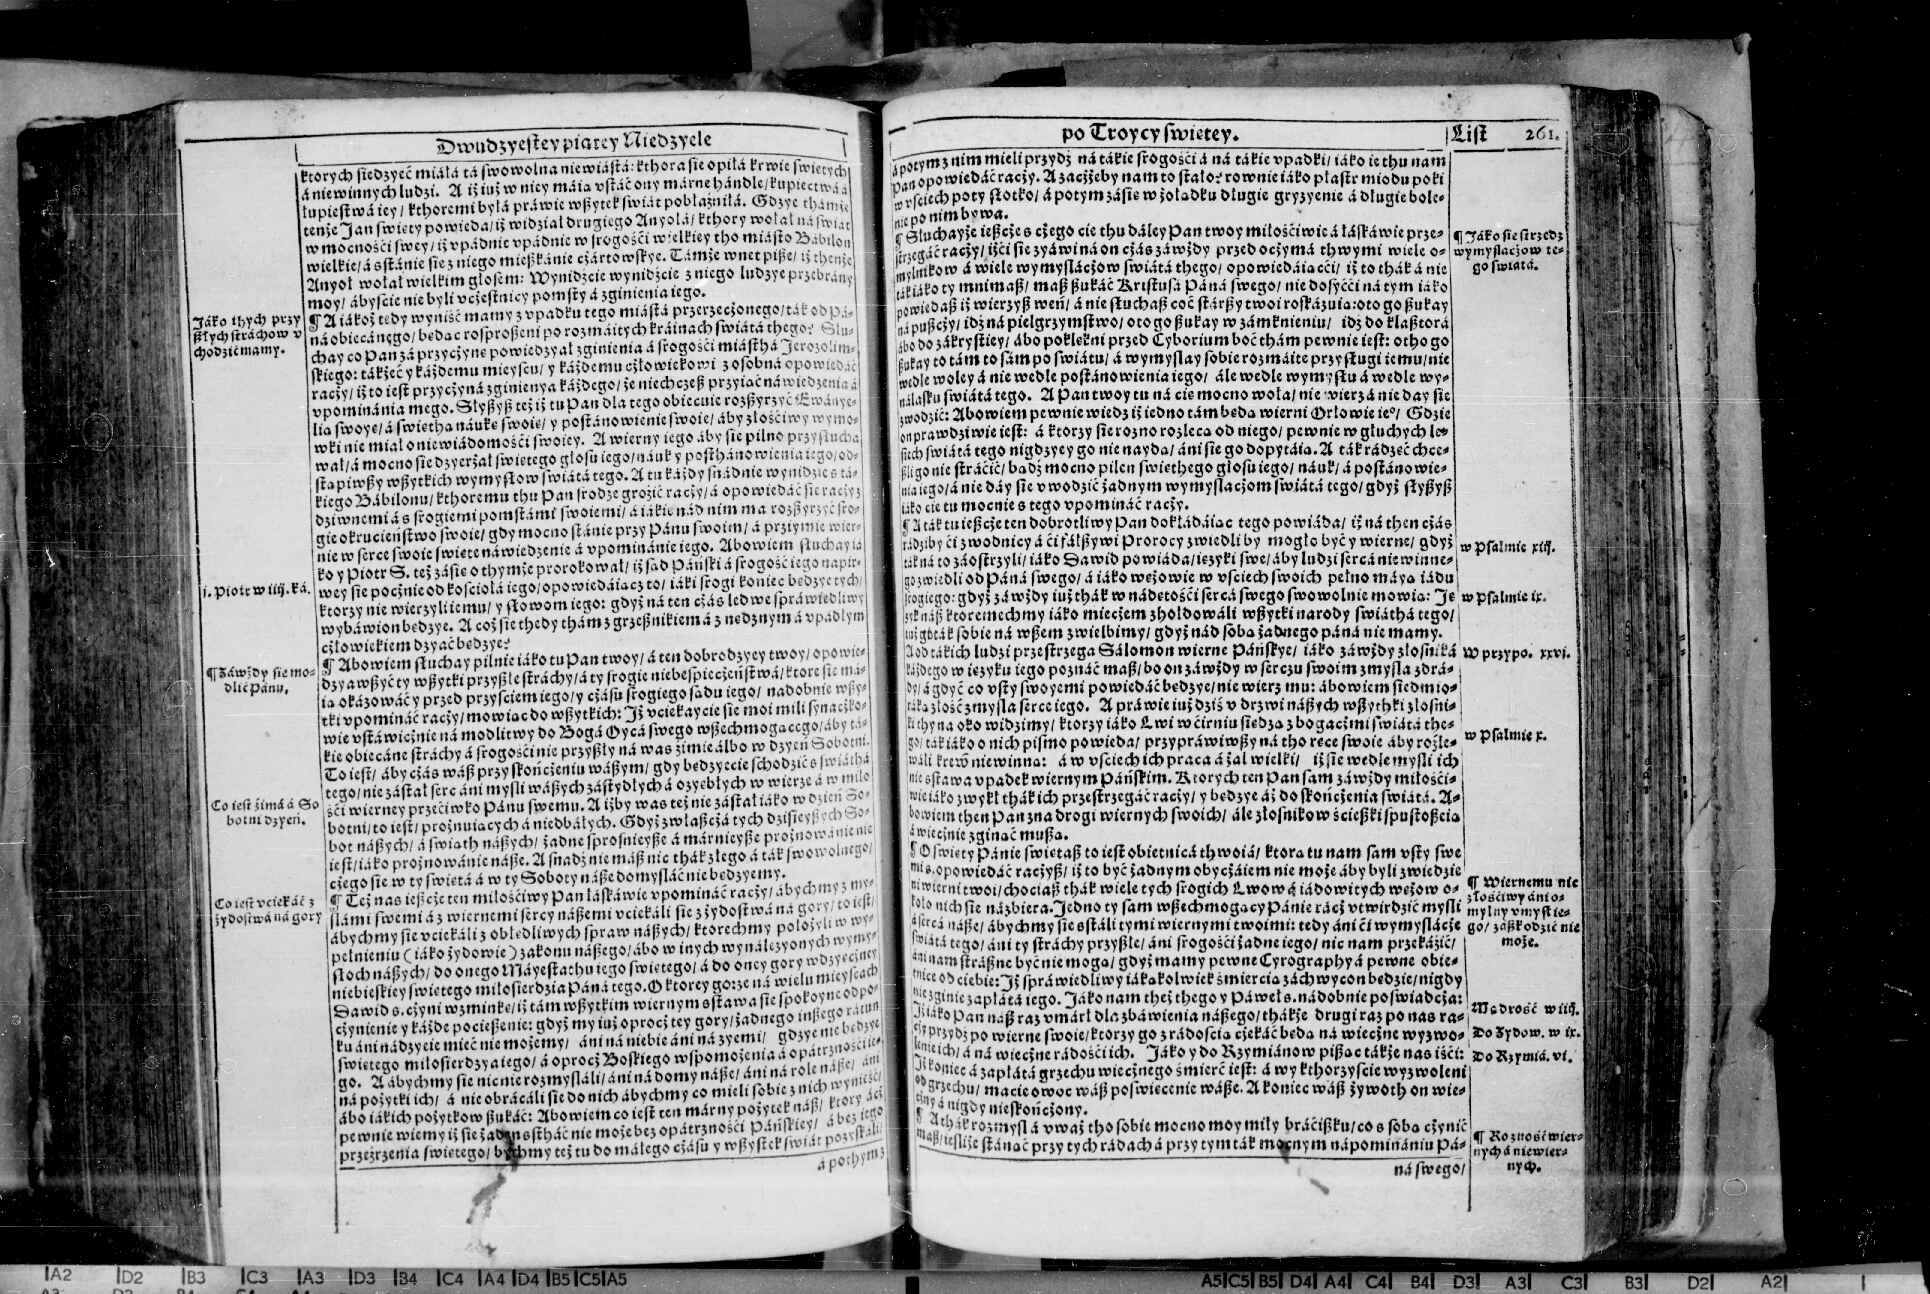 Dwudzyestey piątey Niedzyele
ktorych siedzyeć miáłá tá swowolna niewiástá: kthora sie opiłá krwie swietych
á niewinnych ludzi. A iż iuż w niey máia vstáć ony márne hándle/ kupiectwá á
łupiestwá iey/ kthoremi byłá práwie wßytek swiát pobłaźniłá. Gdzye thámże
tenże Jan swiety powieda/ iż widzial drugiego Anyołá/ kthory wołał ná swiát
w mocnośći swey/ iż vpádnie vpádnie w srogośći wielkiey tho miásto Bábilon
wielkie/ á sstánie sie z niego mießkánie czártowskye. Támże wnet piße/ iż thenże
Anyoł wołał wielkim głosem: Wynidźcie wynidźcie z niego ludzye przebrány
moy/ ábyscie nie byli vczestnicy pomsty á zginienia iego.
¶ A iákoż tedy wyniść mamy z vpadku tego miástá przerzeczonego/ ták od Pá-
ná obiecánego/ bedac rosproßeni po rozmáitych kráinach swiátá thego? Słu-
chay co Pan zá przyczyne powiedzyał zginienia á srogośći miásthá Jerozolim-
skiego: tákżeć y káżdemu mieyscu/ y káżdemu człowiekowi z osobná opowiedáć
raczy/ iż to iest przyczyná zginienya káżdego/ że niechczeß przyiáć náwiedzenia á
vpominánia mego. Słyßyß też iż tu Pan dla tego obiecuie rozßyrzyć Ewánye-
lia swoye/ á swietha náuke swoie/ y postánowienie swoie/ áby złośćiwy wymo-
wki nie miał o niewiádomośći swoiey. A wierny iego áby sie pilno przysłucha
wał/ á mocno sie dzyerżał swietego głosu iego/ náuk y posthánowienia iego/ od-
stąpiwßy wßytkich wymysłow swiátá tego. A tu káżdy snádnie wynidzie s tá-
kiego Bábilonu/ kthoremu thu Pan srodze groźić raczy/ á opowiedáć sie raczy z
dziwnemi á s srogiemi pomstámi swoiemi/ á iákie nád nim ma rozßyrzyć sro-
gie okrucieństwo swoie/ gdy mocno stánie przy Pánu swoim/ á przyimie wier-
nie w serce swoie swiete náwiedzenie á vpominánie iego. Abowiem słuchay iá
ko y Piotr S. też zásie o thymże prorokował/ iż sad Páński á srogość iego napir-
wey sie pocznie od kościołá iego/ opowiedáiacz to/ iáki srogi koniec bedzye tych/
ktorzy nie wierzyli iemu/ y słowom iego: gdyż ná ten czás ledwe spráwiedliwy
wybáwion bedzye. A coż sie thedy thám z grzeßnikiem á z nedznym á vpádłym
człowiekiem dzyać bedzye?
¶ Abowiem słuchay pilnie iáko tu Pan twoy/ á ten dobrodzyey twoy/ opowie-
dzyawßyć ty wßytki przyßłe stráchy/ á ty srogie niebespieczeństwá/ ktore sie má-
ia okázowáć y przed przysciem iego/ y czásu srogiego sadu iego/ nadobnie wßy-
tki vpomináć raczy/ mowiac do wßytkich: Jż vciekaycie sie moi mili synaczko-
wie vstáwicznie ná modlitwy do Bogá Oycá swego wßechmogacego/ áby tá-
kie obiecáne stráchy á srogośći nie przyßły ná was źimie álbo w dzyeń Sobotni.
To iest/ áby czás wáß przy skończeniu wáßym/ gdy bedzyecie schodzić s swiáthá
tego/ nie zástał serc áni mysli wáßych zástydłych á ozyebłych w wierze á w miło
śći wierney przećiwko Pánu swemu. A iżby was też nie zástał iáko w dzień So-
botni/ to iest/ prożnuiacych á niedbáłych. Gdyż zwłaßczá tych dzisieyßych So-
bot náßych/ á swiath náßych/ żadne sprośnieyße á márnieyße prożnowánie nie
iest/ iáko prożnowánie náße. A snadź nie máß nic thák złego á ták swowolnego/
czego sie w ty swietá á w ty Soboty náße domysláć nie bedzyemy.
¶ Też nas ießcze ten miłośćiwy Pan łáskáwie vpomináć raczy/ ábychmy z my-
ślámi swemi á z wiernemi sercy náßemi vciekáli sie z żydostwá ná gory/ to iest/
ábychmy sie vciekáli z obłedliwych spraw náßych/ ktorechmy położyli w wy-
pełnieniu (iáko żydowie) zakonu náßego/ ábo w inych wynálezyonych wymy-
słoch náßych/ do onego Máyestathu iego swietego/ á do oney gory wdzyeczney
niebieskiey swietego miłosierdzia Páná tego. O ktorey gorze ná wielu mieyscach
Dawid s. czyni wzminke/ iż tám wßytkim wiernym sstawa sie spokoyne odpo-
czynienie y káżde pocießenie: gdyż my iuż oprocz tey gory/ żadnego inßego rátun
ku áni nádzyeie mieć nie możemy/ áni ná niebie áni ná zyemi/ gdzye nie bedzye
swietego miłosierdzya iego/ á oprocz Boskiego wspomożenia á opátrznośći ie-
go. A ábychmy sie nic nie rozmyśláli/ áni ná domy náße/ áni ná role náße/ áni
ná pożytki ich/ á nie obracáli sie do nich ábychmy co mieli sobie z nich wynieść/
ábo iákich pożytkow ßukáć: Abowiem co iest ten márny pożytek náß/ ktory acz
pewnie wiemy iż sie żaden ssthać nie może bez opátrznośći Páńskiey/ á bez iego
przeźrzenia swietego/ bychmy też tu do máłego czásu y wßystek swiát pozyskáli/
á pothym z
Jáko thych przy
ßłych stráchow v
chodzić mamy.
j. Piotr w iiij. ká.
¶ Záwżdy sie mo-
dlić Pánu.
Co iest źimá á So
botni dzyeń.
Co iest vciekáć z
żydostwá ná gory
po Troycy swietey.
List 261.
á potym z nim mieli przydź ná tákie srogośći á ná tákie vpadki/ iáko ie thu nam
Pan opowiedáć raczy. A zaczżeby nam to stało? rownie iáko plastr miodu poki
w vsciech poty słotko/ á potym zásie w żoładku długie gryzyenie á długie bole-
nie po nim bywa.
¶ Słuchayże ießcże s czego cie thu dáley Pan twoy miłośćiwie á łáskáwie prze-
strzegáć raczy/ iżći sie zyáwi ná on czás záwżdy przed oczymá thwymi wiele o-
mylnikow á wiele wymyslaczow swiátá thego/ opowiedáiacći/ iż to thák á nie
ták iáko ty mnimaß/ maß ßukáć Kristusá Páná swego/ nie dosyćći ná tym iáko
powiedaß iż wierzyß weń/ á nie słuchaß coć stárßy twoi roskázuia: oto go ßukay
ná pußczy/ idź ná pielgrzymstwo/ oto go ßukay w zámknieniu/ idź do klaßtorá
ábo do zákrystiey/ ábo poklekni przed Cyborium boć thám pewnie iest: otho go
ßukay to tám to sám po swiátu/ á wymyslay sobie rozmáite przysługi iemu/ nie
wedle woley á nie wedle postánowienia iego/ ále wedle wymysłu á wedle wy-
nalasku swiátá tego. A Pan twoy tu ná cie mocno woła/ nie wierz á nie day sie
zwodzić: Abowiem pewnie wiedz iż iedno tám beda wierni Orłowie ieº/ Gdzie
on prawdziwie iest: á ktorzy sie rozno rozleca od niego/ pewnie w głuchych le-
siech swiátá tego nigdzyey go nie nayda/ áni sie go dopytáia. A ták rádzeć chce-
ßli go nie stráćić/ badź mocno pilen swiethego głosu iego/ náuk/ á postánowie-
nia iego/ á nie day sie vwodzić żadnym wymyslaczom swiátá tego/ gdyż słyßyß
iáko cie tu mocnie s tego vpomináć raczy.
¶ A ták tu ießcze ten dobrotliwy Pan dokládáiac tego powiáda/ iż ná then czás
rádziby ći zwodnicy á ći fałßywi Prorocy zwiedli by mogło być y wierne/ gdyż
ták ná to záostrzyli/ iáko Dawid powiáda/ iezyki swe/ áby ludzi sercá niewinne-
go zwiedli od Páná swego/ á iáko weżowie w vsciech swoich pełno máya iádu
srogiego: gdyż záwżdy iuż thák w nádetośći sercá swego swowolnie mowia: Je
zyk náß ktoremechmy iáko mieczem zhołdowáli wßytki narody swiáthá tego/
iużgo ták sobie ná wßem zwielbimy/ gdyż nád soba żadnego páná nie mamy.
A od tákich ludzi przestrzega Sálomon wierne Páńskye/ iáko záwżdy złosniká
káżdego w iezyku iego poznáć maß/ bo on záwżdy w sercu swoim zmysla zdrá-
dy/ á gdyć co vsty swoyemi powiedáć bedzye/ nie wierz mu: ábowiem siedmio-
ráka złość zmysla serce iego. A práwie iuż dziś v drzwi náßych wßythki złosni-
ki thy ná oko widzimy/ ktorzy iáko Lwi w ćirniu siedza z bogaczmi swiátá the-
go/ ták iáko o nich pismo powieda/ przypráwiwßy ná tho rece swoie áby rozle-
wáli krew niewinna: á w vsciech ich praca á żal wielki/ iż sie wedle mysli ich
nie sstawa vpadek wiernym Páńskim. Ktorych ten Pan sam záwżdy miłośći-
wie iáko zwykł thák ich przestrzegáć raczy/ y bedzye áż do skończenia swiátá. A-
bowiem then Pan zna drogi wiernych swoich/ ále złosnikow ścießki spustoßeia
á wiecznie zginać mußa.
¶ O swiety Pánie swietaß to iest obietnicá thwoiá/ ktora tu nam sam vsty swe
mi s. opowiedáć raczyß/ iż to być żadnym obyczáiem nie może áby byli zwiedzie
ni wierni twoi/ chociaß thák wiele tych srogich Lwow á iádowitych weżow o-
koło nich sie názbiera. Jedno ty sam wßechmogacy Pánie racz vtwirdzić mysli
á sercá náße/ ábychmy sie sstáli tymi wiernymi twoimi: tedy áni ći wymyslácże
swiátá tego/ áni ty stráchy przyßłe/ áni srogośći żadne iego/ nic nam przekáźić/
áni nam stráßne być nie moga/ gdyż mamy pewne Cyrography á pewne obie-
tnice od ciebie: Iż spráwiedliwy iákakolwiek śmiercia záchwycon bedzie/ nigdy
nie zginie zapłátá iego. Jáko nam theż thego y Páweł s. nadobnie poświadcza:
Jż iáko Pan náß raz vmárł dla zbáwienia náßego/ thákże drugi raz po nas ra-
czy przydź po wierne swoie/ ktorzy go z rádościa czekáć beda ná wieczne wyzwo-
lenie ich/ á ná wieczne rádośći ich. Jáko y do Rzymiánow pißac tákże nas iśći:
Jż koniec á zapłátá grzechu wiecznego śmierć iest: á wy kthorzyscie wyzwoleni
od grzechu/ macie owoc wáß poświecenie wáße. A koniec wáß żywoth on wie-
czny á nigdy nieskończony.
¶ A thák rozmysl á vważ tho sobie mocno moy miły bráćißku/ co s soba czynić
maß/ iesliże stánać przy tych rádach á przy tym ták mocnym nápominániu Pá-
ná swego/
¶ Jáko sie strzedz
wymyslaczow te-
go swiátá.
w Psalmie xiij.
w Psalmie ix.
W przypo. xxvi.
w Psalmie x.
¶ Wiernemu nic
złośćiwy áni o-
mylny vmysł ie-
go/ záßkodzić nie
może.
Madrość w iiij.
Do Zydow. w ix.
Do Rzymiá. vi.
¶ Roznosć wier-
nych á niewier-
nych.